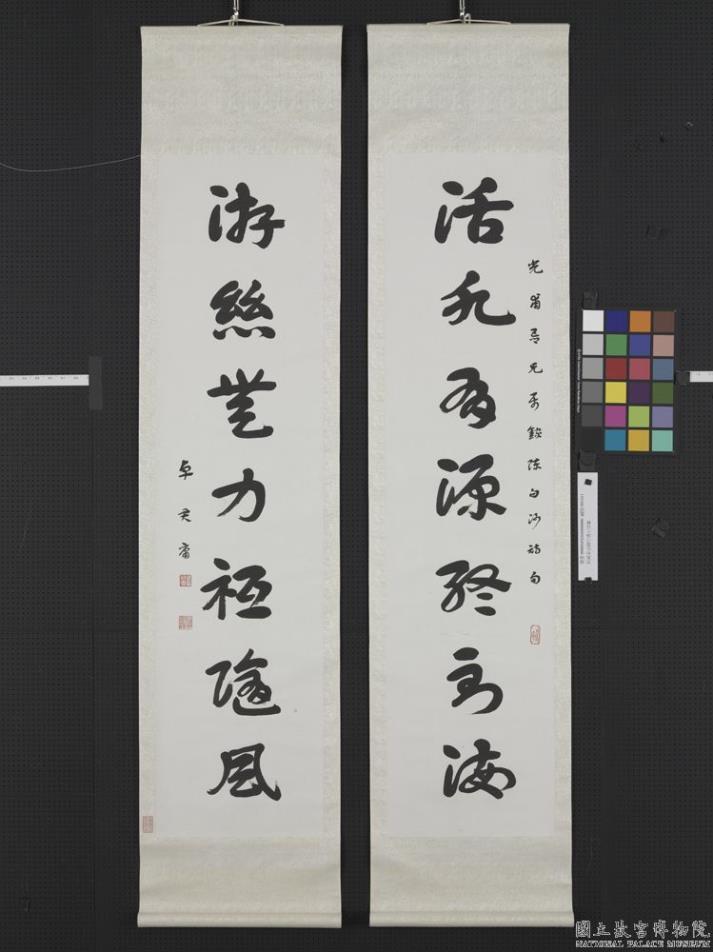 活水有源終到海
光眉吾兄正錄陳白沙詩句
游絲無力祇隨風
卓君庸
國立故宮博物院
NATIONAL PALACE MUSEUM